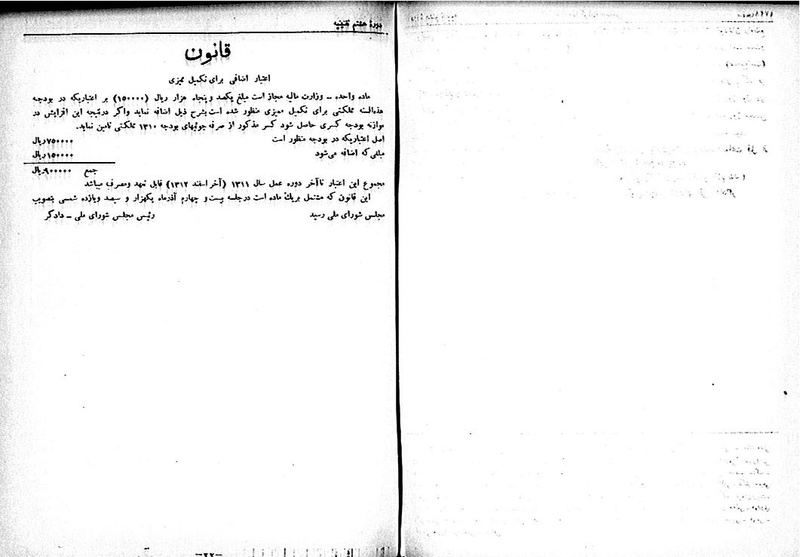 دورهٔ هشتم تقنینیه
قانون
اعتبار اضافی برای تکمیل ممیزی
ماده واحده ــ وزارت مالیه مجاز است مبلغ یکصد و پنجاه هزار ریال (۱۵۰۰۰۰) بر اعتباریکه در بودجه
هذهالسنه مملکتی برای تکمیل ممیزی منظور شده است بشرح ذیل اضافه نماید واگر درنتیجه این افزایش در
موازنه بودجه کسری حاصل شود کسر مذکور از صرفه جوئیهای بودجه ۱۳۱۰ مملکتی تامین نماید.
اصل اعتباریکه در بودجه منظور است ۷۵۰۰۰۰ ریال
مبلغی که اضافه می‌شود ۱۵۰۰۰۰ ریال
جمع ۹۰۰۰۰۰ ریال
مجموع این اعتبار تاآخر دوره عمل سال ۱۳۱۱ (آخر اسفند ۱۳۱۲) قابل تعهد ومصرف میباشد
این قانون که مشتمل بریك ماده است درجلسه بیست و چهارم آذرماه یکهزار و سیصد ویازده شمسی بتصویب
مجلس شورای ملی رسید رئیس مجلس شورای ملی ــ دادگر
ــ۲۲ــ